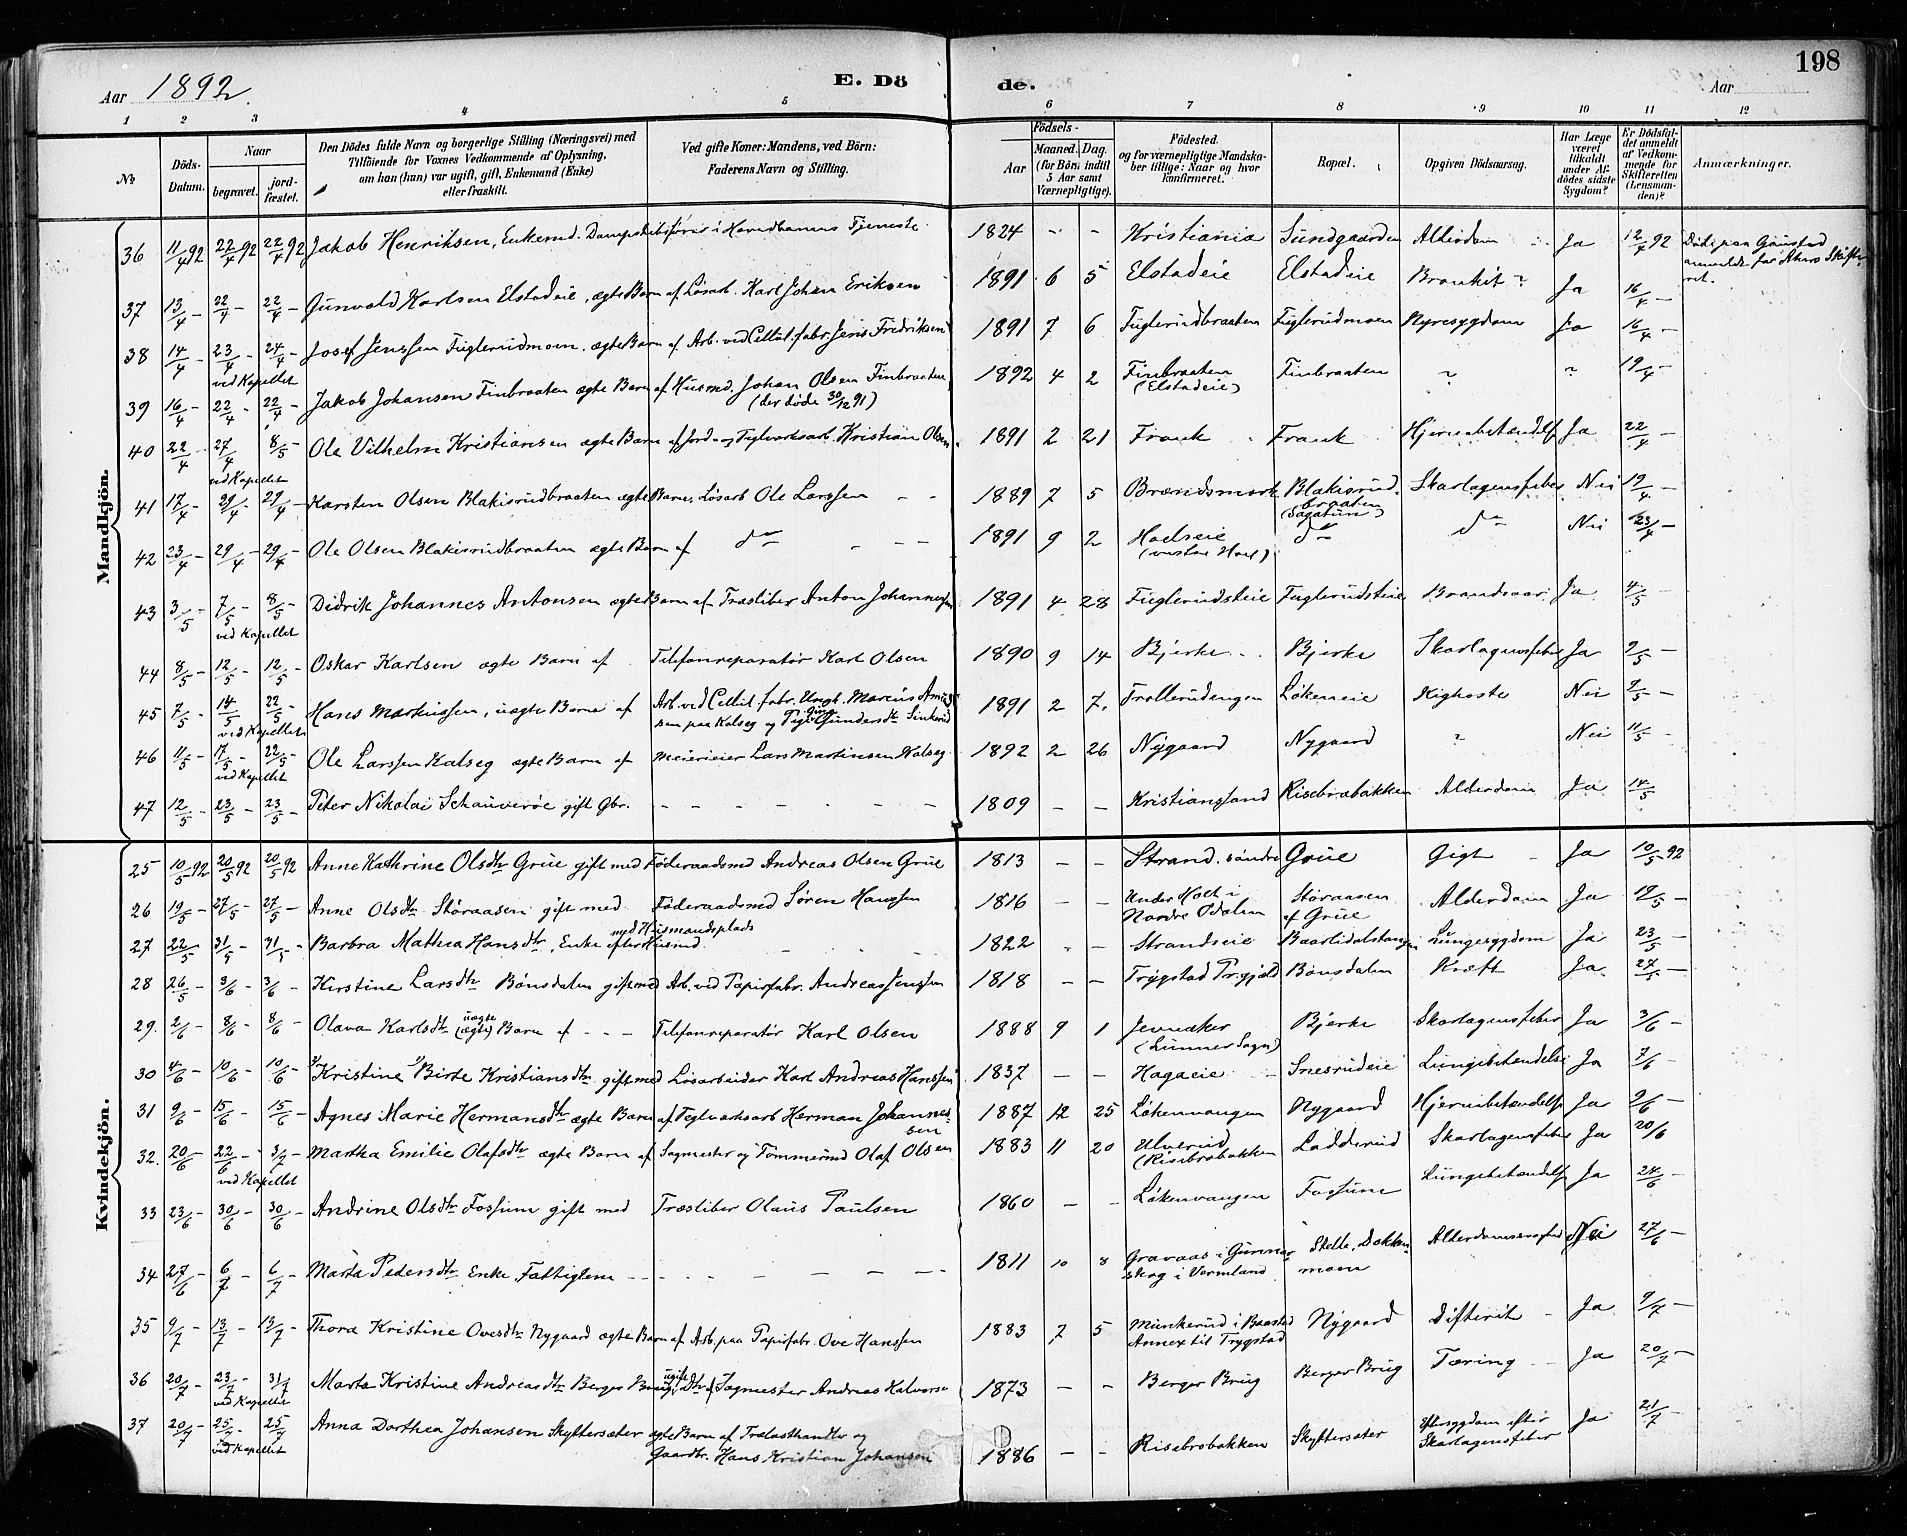 198
Aar 1892.
E. Döde.
Aar
1 2 3 4 5 6 7 8 9 10 11 12
No
Döds-Datum.
Naar
begravet.
jordfæstet.
Den Dödes fulde Navn og borgerlige Stilling (Næringsvei) med
Tilföiende for Voxnes Vedkommende af Oplysning,
om han (hun) var ugift, gift, Enkemand (Enke)
eller fraskilt.
Ved gifte Koner: Mandens, ved Börn:
Faderens Navn og Stilling.
Födsels-
Aar
Maaned. Dag.
(for Börn indtil 5 Aar samt Værnepligtige).
Födested
og for værnepligtige Mandskaber tillige: Naar og hvor konfirmeret.
Bopæl.
Opgiven Dödsaarsag.
Har Læge været tilkaldt under Afdödes sidste Sygdom?
Er Dödsfaldet anmeldt af Vedkommende for Skifteretten (Lensmanden)?
Anmærkninger.
Mandkjön.
36 11/4 92 22/4 92 22/4 92 Jakob Henriksen, Enkemd. Dampskibsfører i Havnebanens Tjeneste 1824 - - Kristiania Sundgaarden Alderdom Ja 12/4 92 Døde paa Gaustad anmeldt for Akers Skifteret.
37 13/4 - 22/4 - 22/4 - Gunvald Karlsen Elstadeie, ægte Barn af Løsarb. Karl Johan Eriksen 1891 6 5 Elstadeie Elstadeie Bronkit ? Ja 16/4 -
38 14/4 - 23/4 - 24/4 - Josef Jenssen Fuglerudmoen, ægte Barn af Arb. ved Cellul. fabr. Jens Fredriksen 1891 7 6 Fuglerudbraaten Fuglerudmoen Nyresygdom Ja 16/4 -
ved Kapellet
39 16/4 - 22/4 - 22/4 - Jakob Johansen Finbraaten ægte Barn af Husmd. Johan Olsen Finbraaten 1892 4 2 Finbraaten Finbraaten ? ? 19/4 -
(der døde 30/12 91) (Elstadeie)
40 22/4 - 27/4 8/5 - Ole Vilhelm Kristiansen ægte Barn af Jord- og Teglverksarb. Kristian Olsen 1891 2 21 Frank Frank Hjernebetændelse Ja 22/4 -
ved Kapellet
41 17/4 - 29/4 - 29/4 - Karsten Olsen Blakisrudbraaten ægte Barn, Løsarb Ole Larssen - - 1889 7 5 Brændsmork Blakisrudbraaten (Sagatun) Skarlagensfeber Nei 19/4 -
42 23/4 - 29/4 - 29/4 - Ole Olsen Blakisrudbraaten ægte Barn af do - - - 1891 9 2 Haelseie (vestre Hael) do do Nei 23/4 -
43 3/5 - 7/5 - 8/5 - Didrik Johannes Antonsen ægte Barn af Træsliber Anton Johannessen 1891 4 28 Fuglerudsteie Fuglerudsteie Brandsaar Ja 4/5 -
ved Kapellet
44 8/5 - 12/5 - 12/5 - Oskar Karlsen ægte Barn af Telefonreparatør Karl Olsen 1890 9 14 Bjerke Bjerke Skarlagensfeber Ja 9/5 -
45 7/5 - 14/5 22/5 - Hans Martinssen, uægte Barn af Arb. ved Cellul. fabr. Ungk. Marcus Amundsen paa Kalseg og Pige Gunda Gundersdtr Sinkerud 1891 2 7. Trollerudengen Løkeneie Kighoste Nei 9/5 -
ved Kapellet
46 11/5 - 17/5 - 22/5 - Ole Larssen Kalseg ægte Barn af Meierieier Lars Martinsen Kalseg 1892 2 26 Nygaard Nygaard ? Nei 11/5 -
ved Kapellet
47 12/5 - 23/5 - 23/5 - Peter Nikolai Schauverøe gift Gbr. - - - - - - 1809 - - Kristianssand Risebrobakken Alderdom Ja 14/5
Kvindekjön.
25 10/5 92 20/5 92 20/5 92 Anne Kathrine Olsdtr Grue gift med Føderaadsmd Andreas Olsen Grue 1813 - - Strand. søndre Grue Gigt - Ja 10/5 92
26 19/5 - 27/5 - 27/5 - Anne Olsdtr Støraasen gift med Føderaadsmd Søren Hanssen 1816 - - Under Holt i Nordre Odalen Støraasen af Grue Alderdom Ja 19/5 -
27 22/5 - 31/5 - 31/5 - Barbra Mathea Hansdtr, Enke efter Husmd. med Husmandsplads 1822 - - Strandseie Baarlidalstangen Lungesygdom Ja 23/5 -
28 26/5 - 3/6 - 3/6 - Kirstine Larsdtr Bønsdalen gift med Arb. ved Papirfabr. Andreas Jenssen 1818 - - Trygstad Prgjæld Bønsdalen Kræft Ja 27/5 -
29. 2/6 - 8/6 - 8/6 Olava Karlsdtr uægte (ægte) Barn af - - - Telefonreparatør Karl Olsen 1888 9 1 Jevnaker (Lunner Sogn) Bjerke Skarlagensfeber Ja 3/6 -
30 4/6 - 10/6 - 10/6 - Kristine Birte Kristiansdtr gift med Løsarbeider Karl Andreas Hanssen 1837 - - Hagaeie Snesrudeie Lungebetændelse Ja 7/6 -
31 9/6 - 15/6 - 15/6 - Agnes Marie Hermansdtr ægte Barn af Teglverksarb Herman Johannessen 1887 12 25 Løkenvangen Nygaard Hjernebetændelse Ja 9/6 -
32. 20/6 - 22/6 - 3/7 - Martha Emilie Olafsdtr ægte Barn af Sagmester og Tømmermd Olaf Olsen 1883 11 20 Ulverud (Risebrobakken Ladderud Skarlagensfeber Ja 20/6
ved Kapellet
33 23/6 - 30/6 - 30/6 - Andrine Olsdtr Fossum gift med Træsliber Olaus Paulsen 1860 - - Løkenvangen Fossum Lungebetændelse Ja 24/6 -
34 27/6 - 6/7 - 6/7 - Marta Pedersdtr Enke Fattiglem - - - - - - - 1811 10 8 Gravaas i Gunnarskog i Vermland Stella, Dokkenmoen Alderdomssvaghed Nei 27/6 -
35 9/7 - 13/7 - 13/7 - Thora Kristine Ovesdtr Nygaard ægte Barn af Arb. paa Papirfabr. Ove Hanssen 1883 7 5 Munkerud i Baastad Annex til Trygstad Nygaard Difterit - Ja 9/7 -
36 20/7 - 23/7 - 31/7 Marta Kristine Andreasdtr Berger Brug, ugift Dtr af Sagmester Andreas Halvorse 1873 - - Berger Brug Berger Brug Tæring - Ja 20/7 -
ved Kapellet
37 20/7 - 25/7 - 25/7 - Anna Dorthea Johansen Skyttersæter ægte Barn af Trælasthandler og Gaardbr. Hans Kristian Johansen 1886 - - Risebrobakken Skyttersæter Eftersygdom efter Skarlagensfeber Ja 21/7 -
ved Kapellet